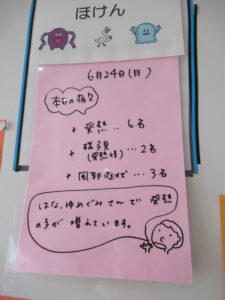 ほけん
6月24日(月)
本日の病欠
+ 発熱 ‥ 6名
+ 様子見
(発熱後) … 2名
+ 風邪症状で … 3名
はな、ゆめぐみさんで 発熱
の子が 増えています。